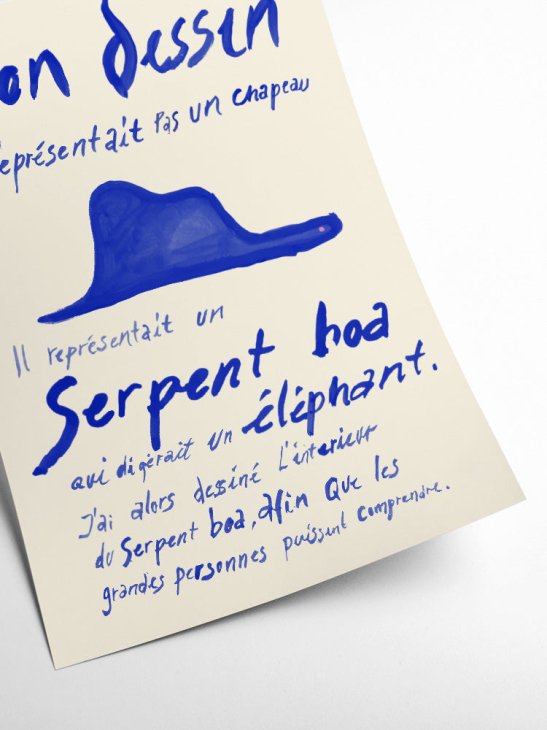 on dessin
représentait Pas un chapeau
Il représentait un
Serpent boa
qui digérait un éléphant.
J'ai alors dessiné L'intérieur
du Serpent boa, afin Que les
grandes personnes puissent comprendre.